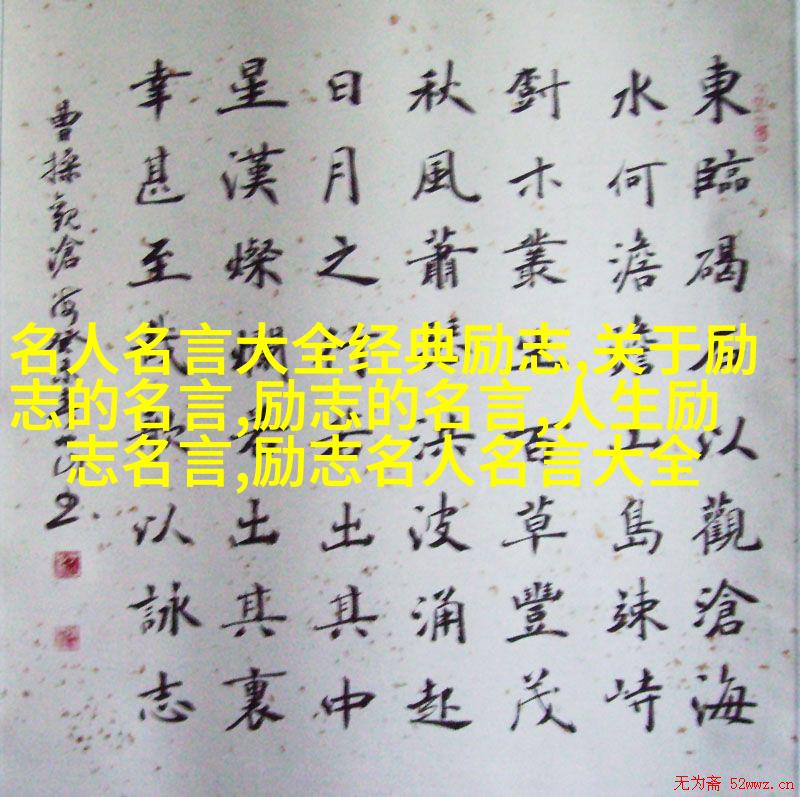 名人名言大全经典励志,关于励
志的名言,励志的名言,人生励
志名言,励志名人名言大全
東臨碣石以觀滄海
水何澹澹山島竦峙
木叢百草豐茂
秋風蕭瑟洪波涌起
日月之行若出其中
星漢燦爛若出其裏
幸甚至哉歌以詠志
曹操觀滄海
无为斋 52wwz.cn